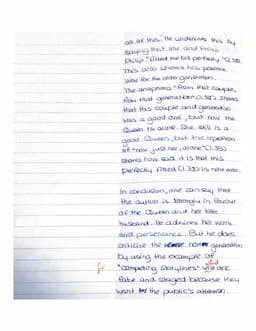 all of this. He underlines this by
saying that she and Prince
Philip "fitted the bill perfectly" (l.38).
This also shows his positive
view for the older generation.
The anaphora "from that couple,
from that generation" (l.38) shows
that this couple and generation
was a good one, but now the
Queen is alone. She still is a
good Queen, but the repetion
of "now just her, alone" (l.38)
shows how sad it is that this
perfectly fitted (l.38) is now over.
In conclusion, one can say that
the author is strongly in favour
of the Queen and her late
husband. He admires her work
and perseverance. But he does
criticize the new generation
by using the example of
"competing storylines" and are
fr
false and staged because they
want for the public's attention.